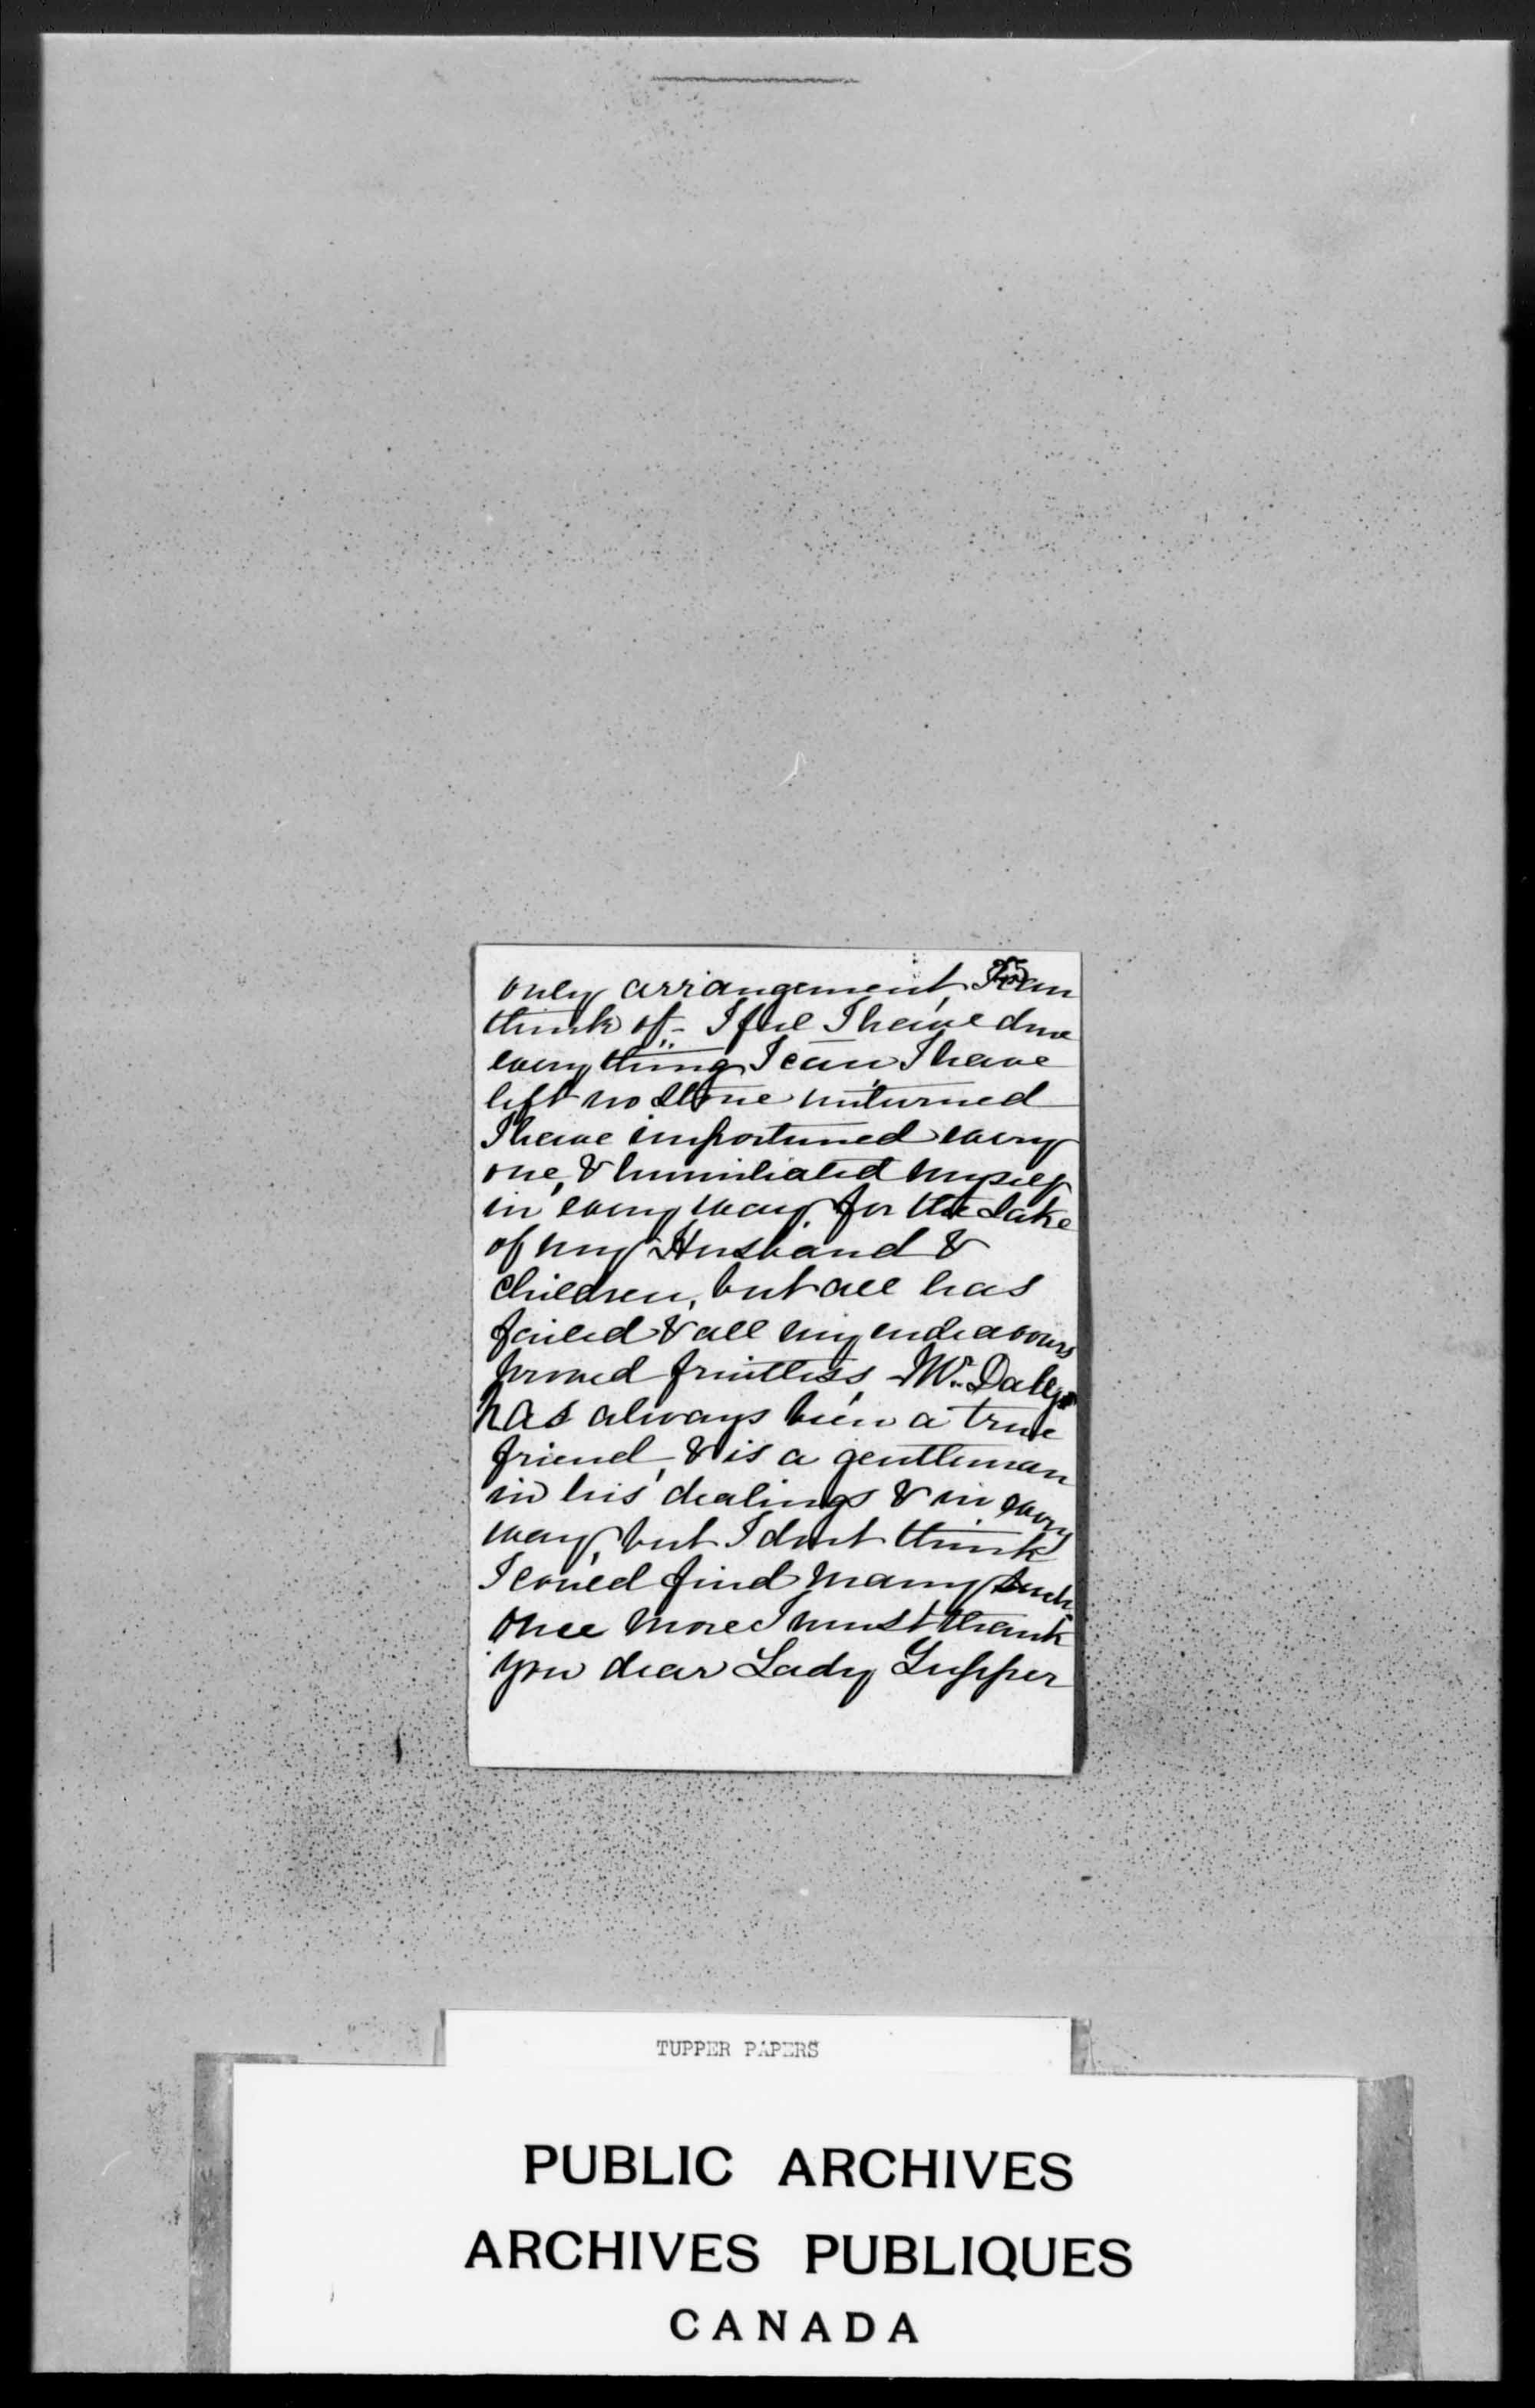 only arrangement, I can
think of - I feel I have done
every thing I can, I have
left no stone unturned
I have importuned every
one, & humiliated myself
in every way, for the sake
of my Husband &
children, but all has
failed & all my endeavours
proved fruitless, Mr. Daly
has always been a true
friend, & is a gentleman
in his dealings & in every
way, but I dont think
I could find many such
once more I must thank
you dear Lady Tupper
TUPPER PAPERS
PUBLIC ARCHIVES
ARCHIVES PUBLIQUES
CANADA